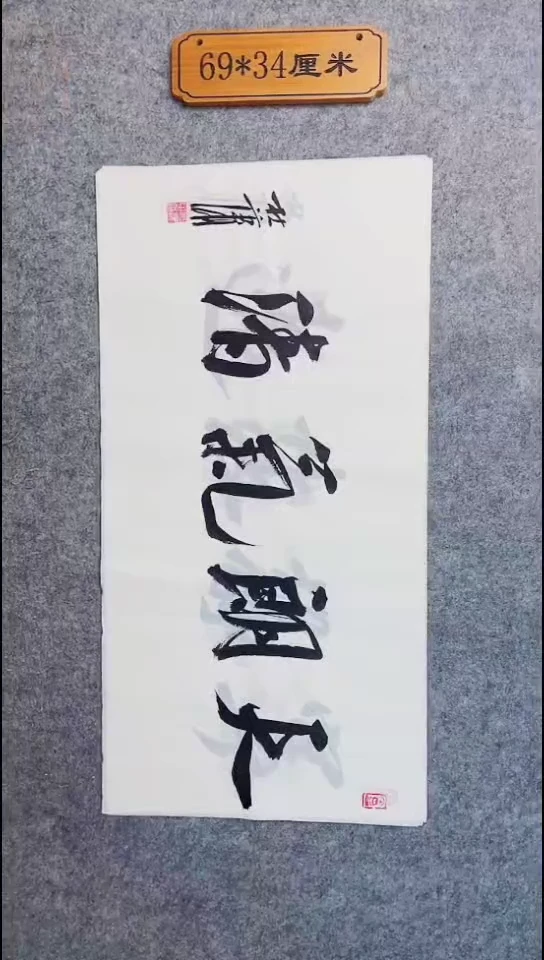 69*34厘米
天朗氣清
杜